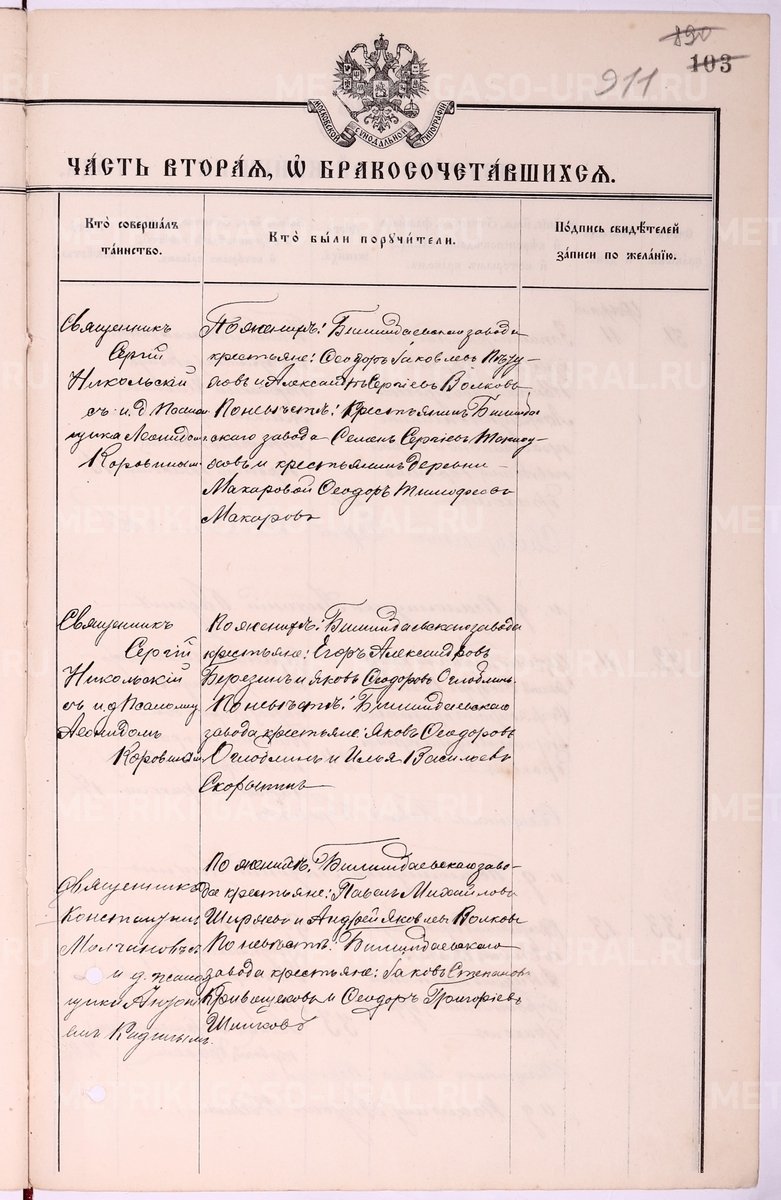 890
103
911
МОСКОВСКОЙ СѴНОДАЛЬНОЙ ТИПОГРАФІИ
ЧА́СТЬ ВТОРА́Я, Ѡ҆ БРАКОСОЧЕТА́ВШИХСЯ.
Кто̀ соверша́лъ
та́инство.
Кто̀ бы́ли порꙋчи́тели.
По́дпись свидѣ́телей
за́писи по жела́нїю.
Священникъ
Сергій
Никольскій
съ и. д. Псалом
щика Леонидом
Коровинымъ
По женихѣ: Билимбаевскаго завода
крестьяне: Ѳеодоръ Іаковлевъ
и Алексѣй Сергіевъ Волковъ
По невѣстѣ: Крестьянинъ Билимба
скаго завода Семенъ Сергіевъ
и крестьянинъ деревни
Макаровой Ѳеодоръ Тимоѳеевъ
Макаровъ
Священникъ
Сергій
Никольскій
съ и. д. Псаломщ
Леонидомъ
Коровиным
По женихѣ: Билимбаевскаго завода
крестьяне: Егоръ Александровъ
Березинъ и Яковъ Ѳеодоровъ Оглоблинъ
По невѣстѣ: Билимбаевскаго
завода крестьяне: Яковъ Ѳеодоровъ
Оглоблинъ и Илья Василіевъ
Скорынинъ
Священникъ
Константинъ
Молчановъ съ
и. д. псалом
щика Антоні
емъ
По женихѣ: Билимбаевскаго заво-
да крестьяне: Павелъ Михайловъ
Ширяевъ и Андрей Яковлевъ Волковъ
По невѣстѣ: Билимбаевскаго
завода крестьяне: Іаковъ Степановъ
Кривощековъ и Ѳеодоръ Григоріевъ
METRIKI.GASO-URAL.RU